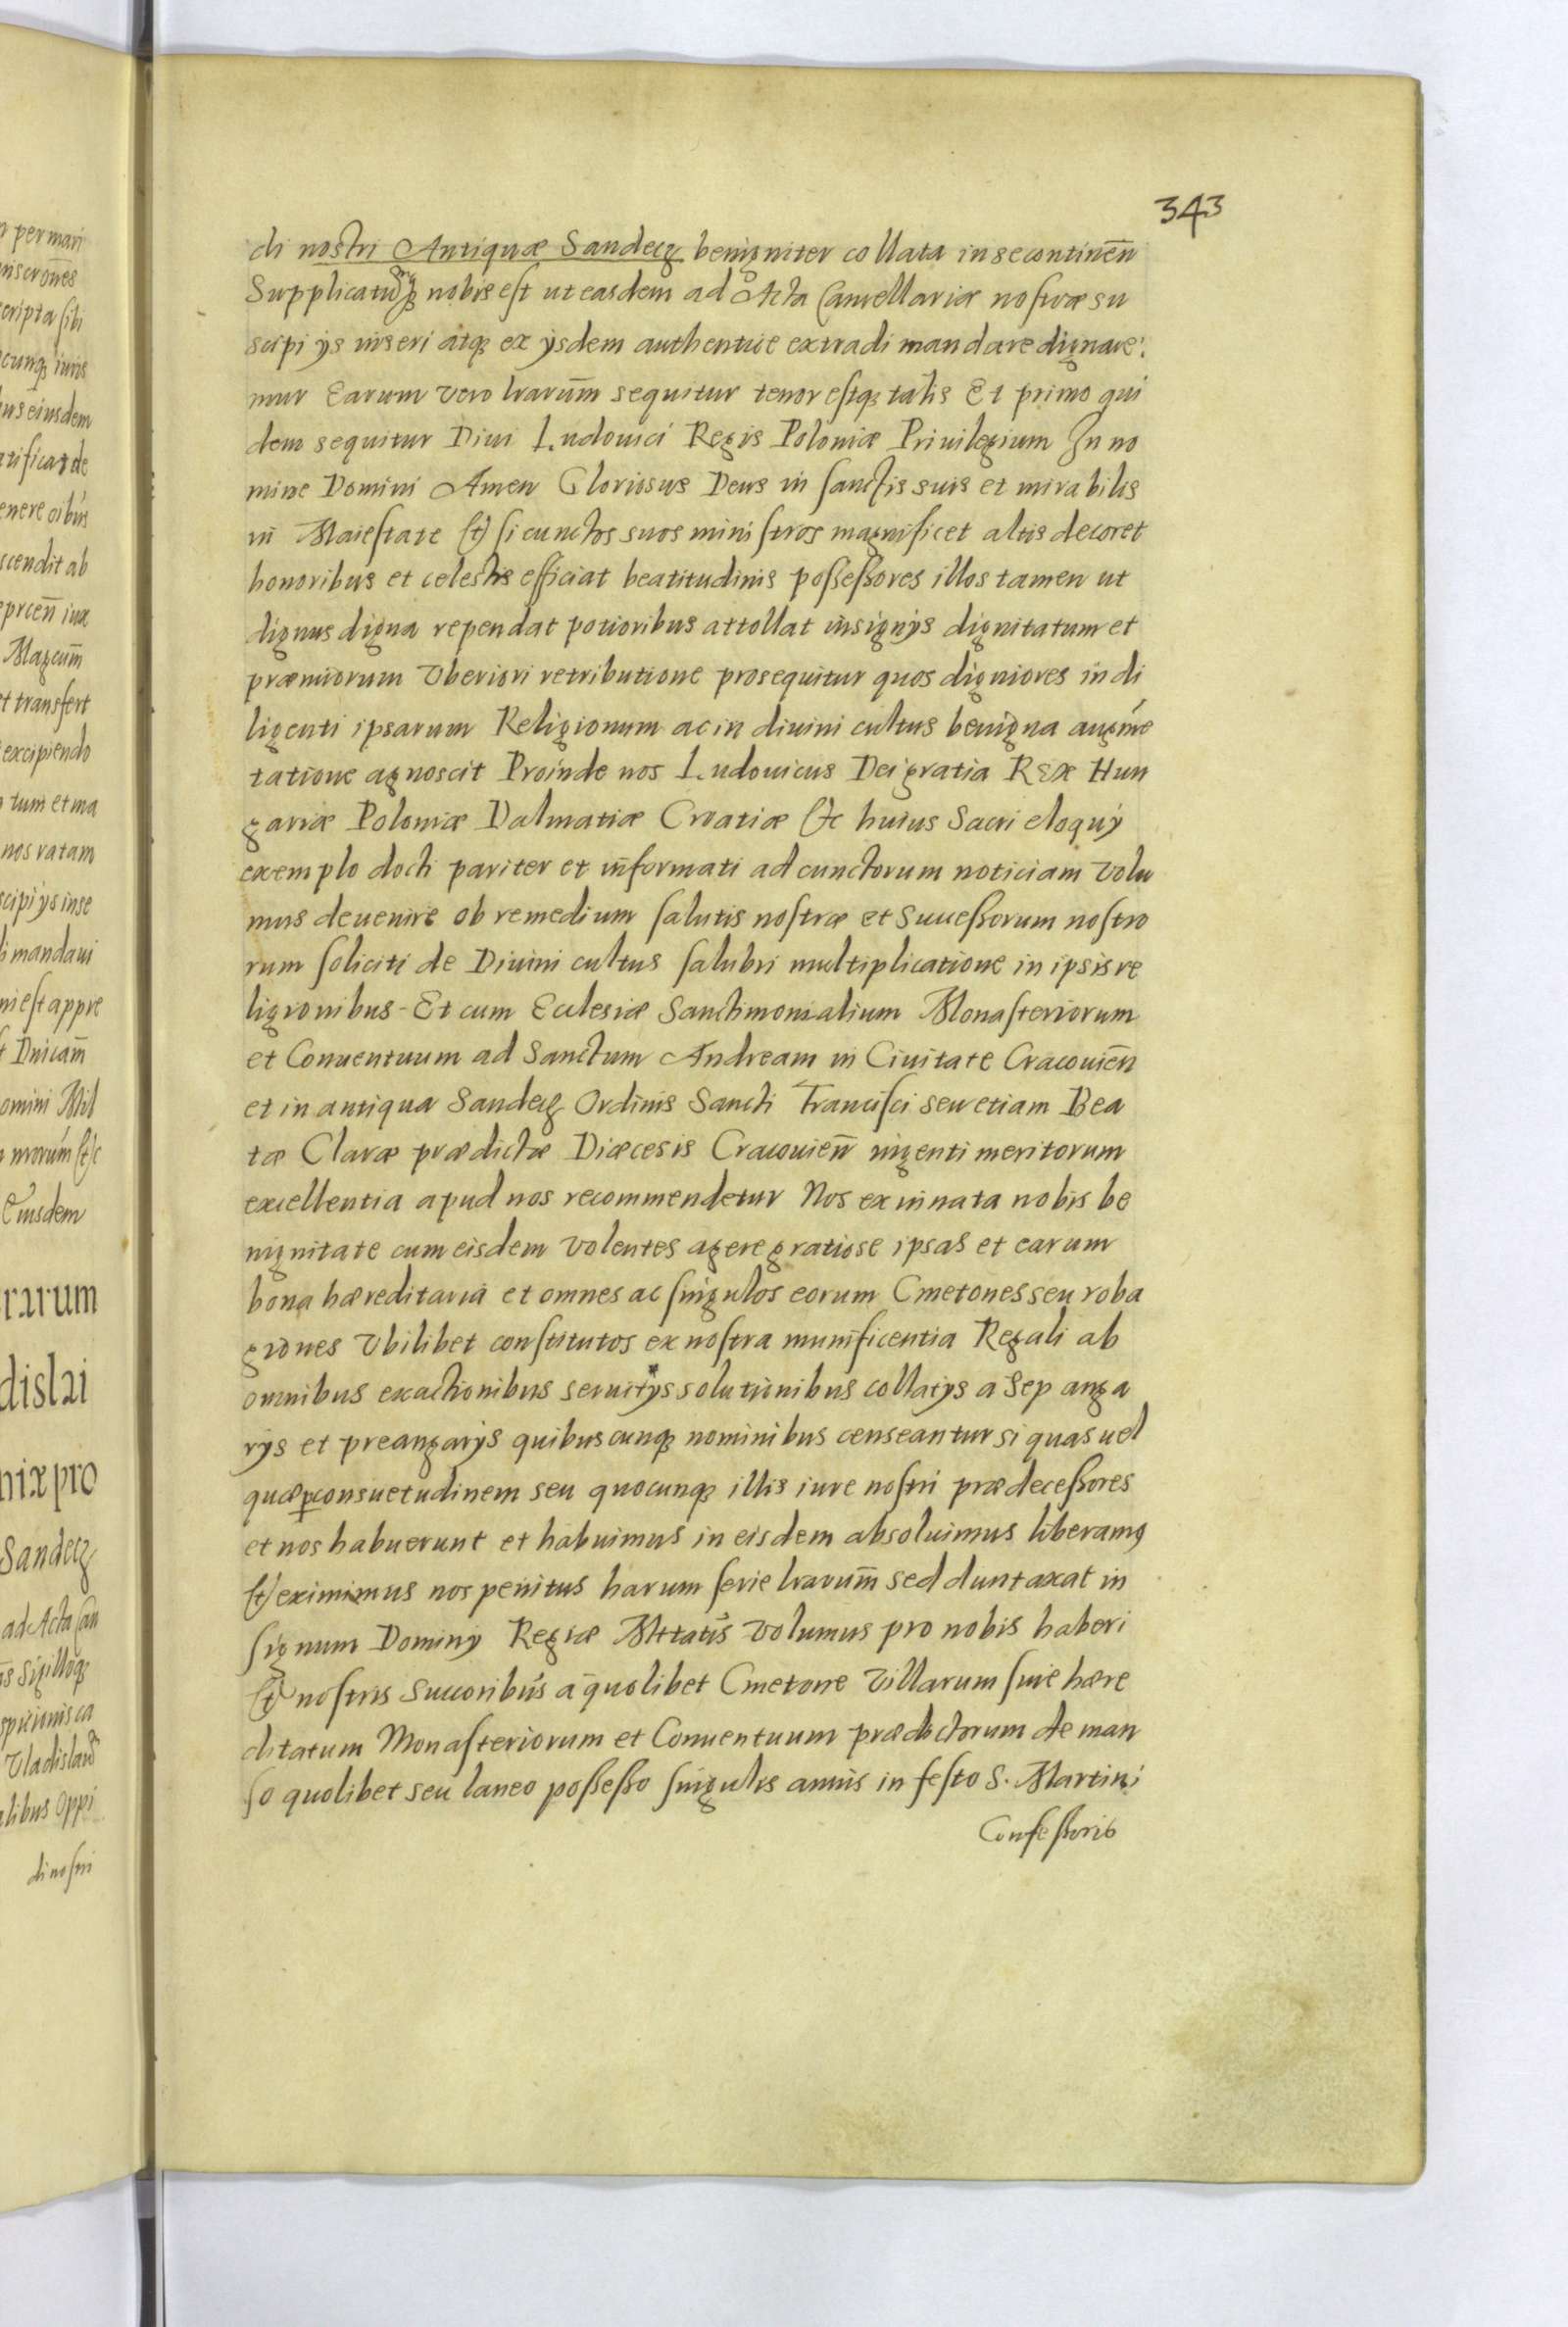 343
di nostri Antiquæ Sandecz benigniter collata in se continen̄
Supplicatumq3 nobis est ut easdem ad Acta Cancellariæ nostræ su
scipi ys inseri atq3 ex ysdem authentice extradi mandare dignare:
mur Earum vero lrarum̄ sequitur tenor estq3 talis Et primo qui
dem sequitur Diui Ludouici Regis Poloniæ Priuilegium In no
mine Domini Amen Gloriosus Deus in sanctis suis et mirabilis
in Maiestate Et si cunctos suos ministros magnificet altis decoret
honoribus et celestis efficiat beatitudinis possessores illos tamen ut
dignus digna rependat potioribus attollat insignys dignitatum et
præmiorum Vberiori retributione prosequitur quos digniores in di
ligenti ipsarum Religionum ac in diuini cultus benigna augmē
tatione agnoscit Proinde nos Ludouicus Dei gratia Rex Hun
gariæ Poloniæ Dalmatiæ Croatiæ Etc huius Sacri eloquy
exemplo docti pariter et informati ad cunctorum noticiam Volu
mus deuenire ob remedium salutis nostræ et Successorum nostro
rum soliciti de Diuini cultus salubri multiplicatione in ipsis re
ligionibus - Et cum Ecclesiæ Sanctimonialium Monasteriorum
et Conuentuum ad Sanctum Andream in Ciuitate Cracouien̄
et in antiqua Sandecz Ordinis Sancti Francisci seu etiam Bea
tæ Claræ prædictæ Diæcesis Cracouien̄ ingenti meritorum
excellentia apud nos recommendetur Nos ex innata nobis be
nignitate cum eisdem Volentes agere gratiose ipsas et earum
bona hæreditaria et omnes ac singulos eorum Cmetones seu roba
giones Vbilibet constitutos ex nostra munificentia Regali ab
omnibus exactionibus seruitys solutionibus collatys a Sep anga
rys et preangarys quibuscunq3 nominibus censeantur si quas uel
quæ p consuetudinem seu quocunq3 illis iure nostri prædecessores
et nos habuerunt et habuimus in eisdem absoluimus liberamq
Et eximimus nos penitus harum serie lrarum̄ sed duntaxat in
signum Dominy Regiæ Mttatis Volumus pro nobis haberi
Et nostris Succoribus a quolibet Cmetone Villarum siue hære
ditatum Monasteriorum et Conuentuum prædictorum de man
so quolibet seu laneo possesso singulis annis in festo S. Martini
Confessoris